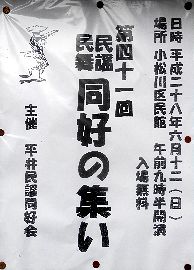 日時 平成二十八年六月十二(日)
場所 小松川区民館 午前九時半開演
入場無料
第四十一回
民謡
民舞
同好の集い
主催 平井民謡同好会